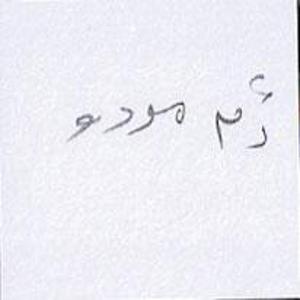 رٔم مودو